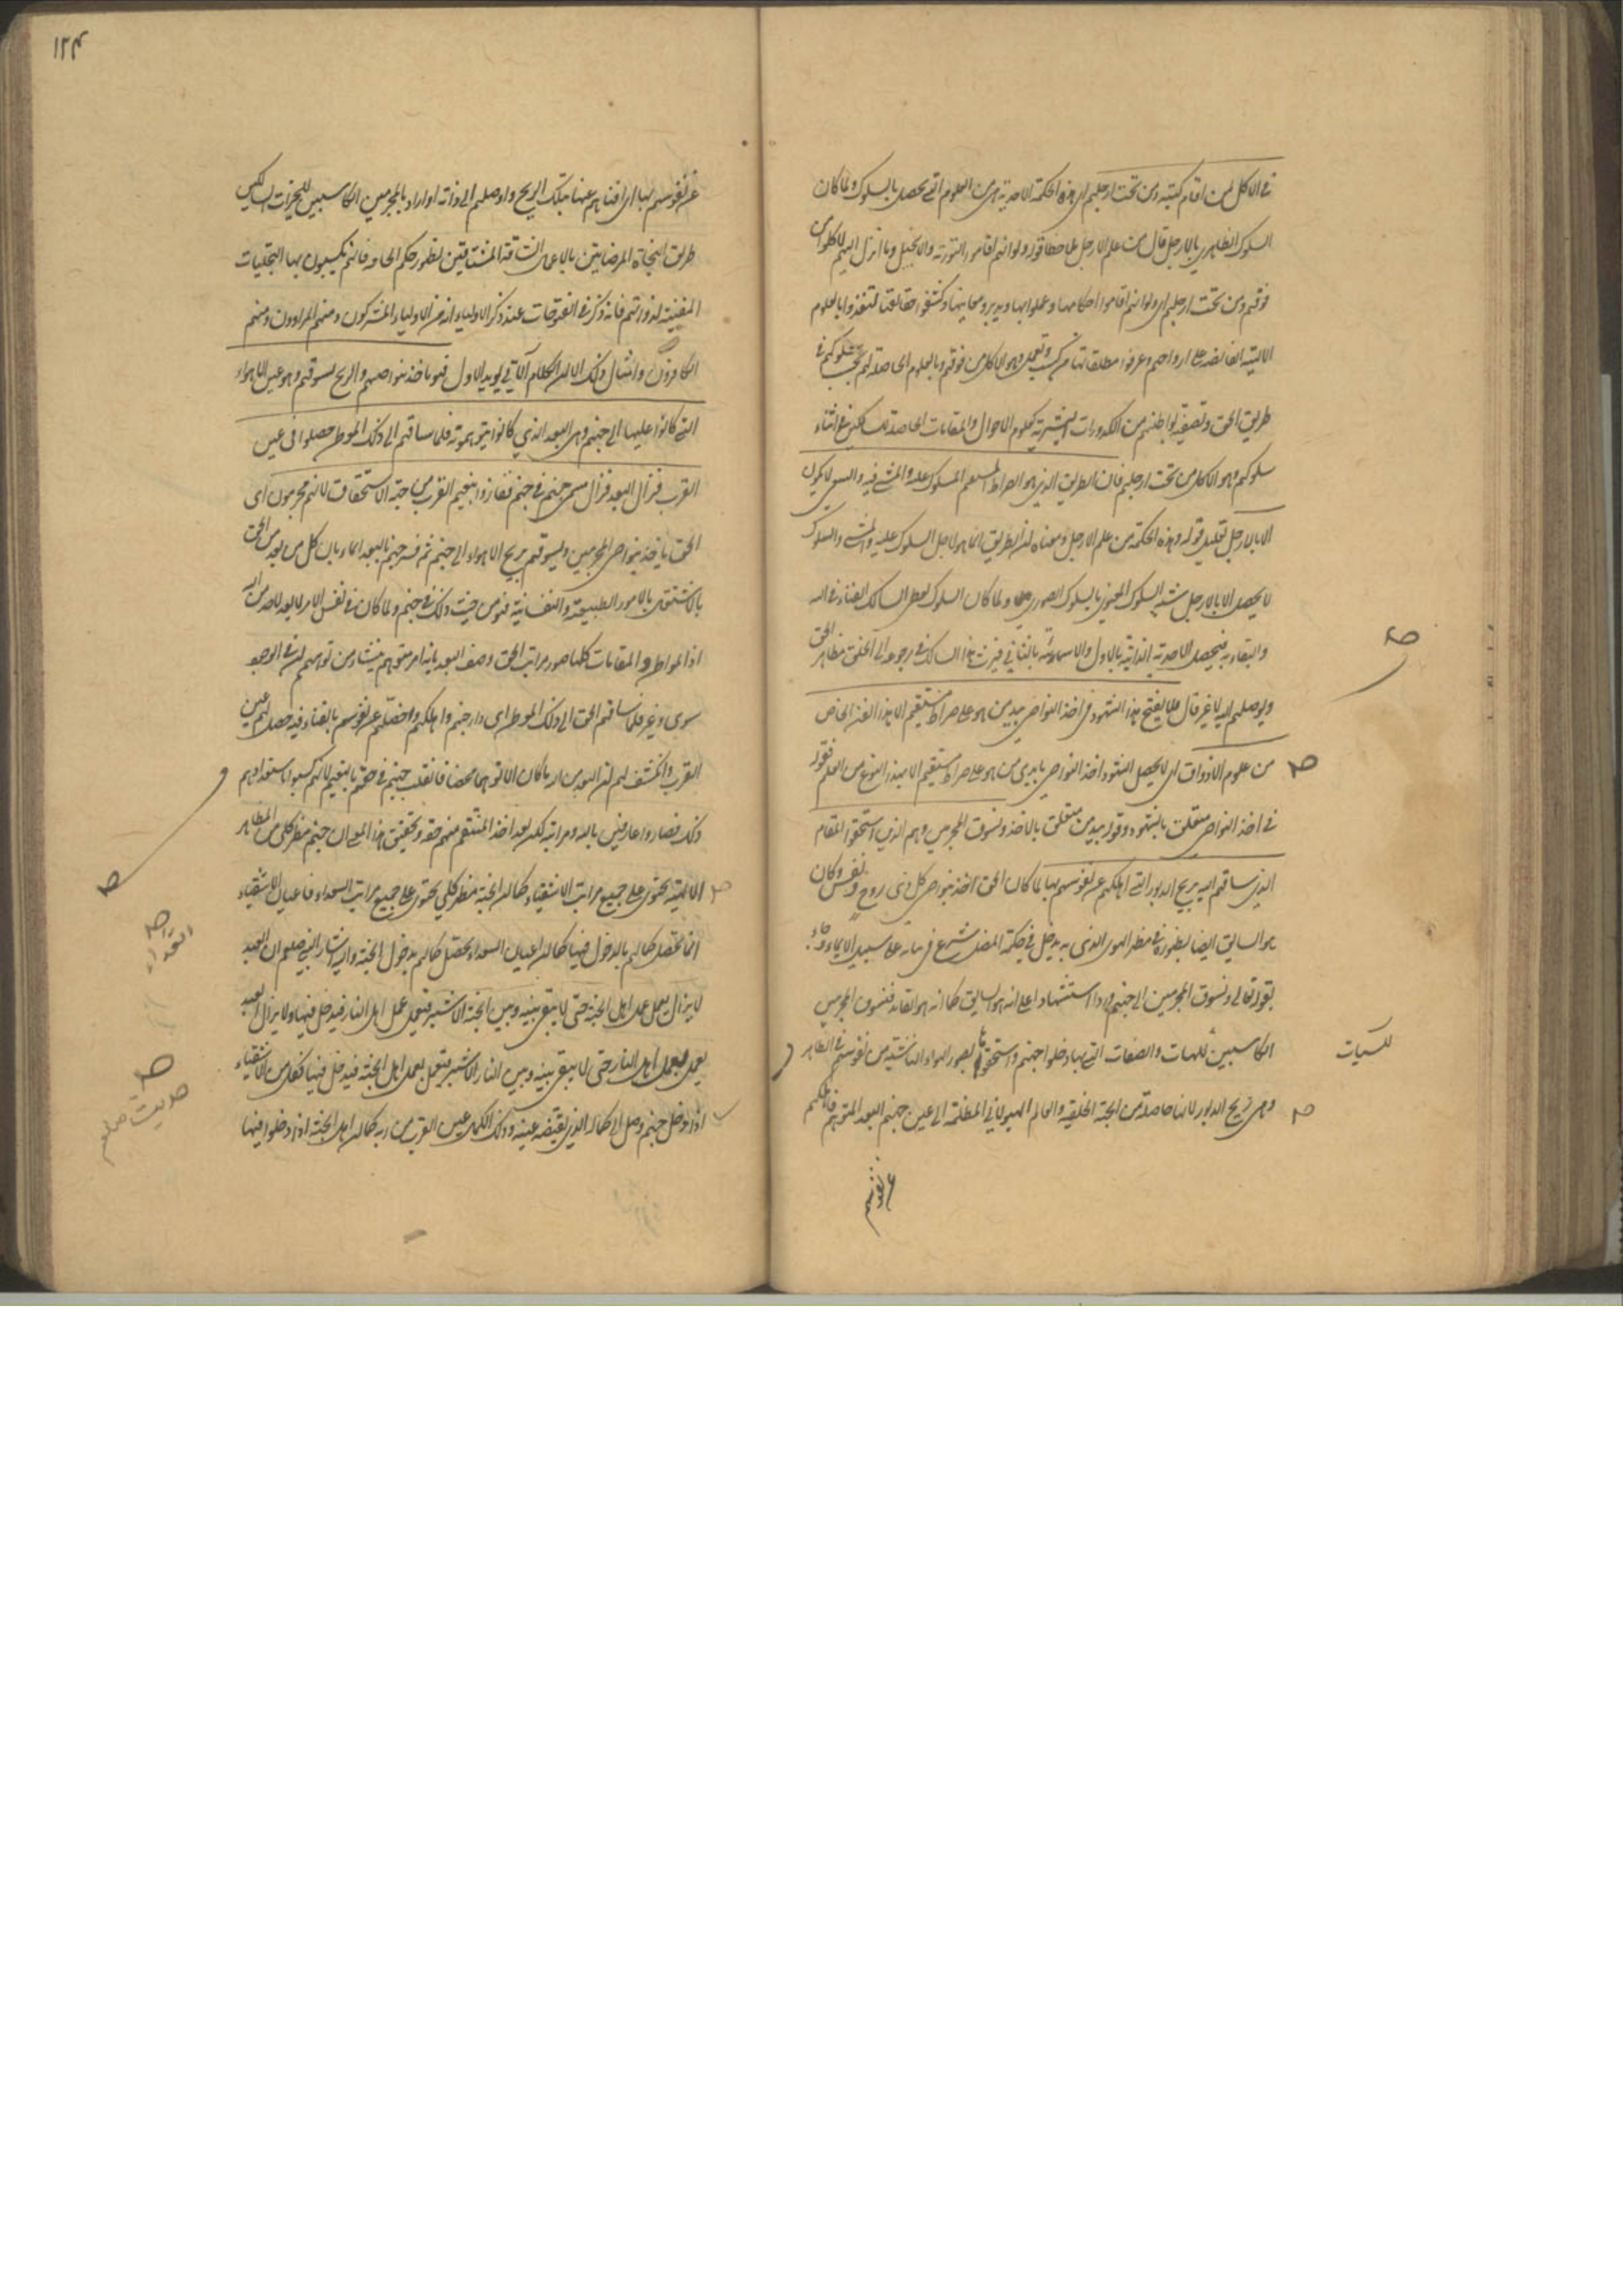 في الاكل لمن اقام كتبه ومن تحت ارجلهم اي هذه الحكمة الاحدية هي من العلوم التي تحصل بالسلوك ولما كان
السلوك الظاهري بالارجل قال من علم الارجل ملاحظا قوله ولو انهم اقاموا التورية والانجيل وما انزل اليهم لاكلوا من
فوقهم ومن تحت ارجلهم اي ولو انهم اقاموا احكامها وعملوا بها وتدبروا معانيها وكشفوا حقائقها لتغذوا بالعلوم
الالهية الفائضة على ارواحهم وعرفوا مطلعاتها من كسب وتعمل وهو الاكل من فوقهم وبالعلوم الحاصلة لهم بحسب سلوكهم في
طريق الحق وتصفية بواطنهم من الكدورات البشرية كعلوم الاحوال والمقامات الحاصلة في اثناء
سلوكهم وهو الاكل من تحت ارجلهم فان الطريق الذي هو الصراط للسلوك عليه والمشي فيه والسعي لا يكون
الا بالارجل تعليل قوله وهذه الحكمة من علم الارجل ومعناه ان الطريق انما هو لاجل السلوك عليه والمشي والسلوك
لا يحصل الا بالارجل شبه السلوك المعنوي بالسلوك الصوري ولما كان السلوك يعطي السالك الفناء في الله
والبقاء به فيحصل الاحدية الذاتية بالاول والاسمائية بالثاني السالك في رجوعه الى الخلق مظاهر الحق
ويوصلهم اليه لا غير قال فلا ينتج هذا الشهود في اخذ النواصي بيد من هو على صراط مستقيم الا هذا الفن الخاص
من علوم الاذواق اي لا يحصل الشهود اخذ النواصي بايدي من هو على صراط مستقيم الا بهذا النوع من العلم فقوله
في اخذ النواصي متعلق بالشهود وقوله بيد من متعلق بالاخذ ونسوق المجرمين وهم الذين استحقوا المقام
الذي ساقهم اليه بريح الدبور التي اهلكهم عن نفوسهم بها لما كان الحق آخذ بنواصي كل ذي روح ونفس وكان
هو السايق ايضا بظهوره في مظهر الهوى الذي به يدخل في حكمة المضل شرع في بيانه على سبيل الايماء وجاء
بقوله تعالى ونسوق المجرمين الى جهنم وردا استشهادا على انه هو السايق كما انه هو القائد فنسوق المجرمين
الكاسبين للهيئات والصفات التي بها دخلوا جهنم واستحقوها بصور الهواء الناشئة من نفوسهم في الظاهر
للسيئات
وهي ريح الدبور لانها حاصلة من الجهة الخلقية والعالم الهيولاني المظلمة الى عين جهنم البعد المتوهم فاهلكهم
عن نفوسهم
١٢٤
عن نفوسهم بها اي افناهم عنها بتلك الريح واوصلهم الى ذاته او اراد بالمجرمين الكاسبين للخيرات السالكين
طريق النجاة المرتاضين بالاعمال الشاقة المشتاقين لظهور حكم الحاقه فانهم يكسبون بها التجليات
المفنية لذواتهم فانه ذكر في الفتوحات عند ذكر الاولياء ان من الاولياء المشركون ومنهم المراؤون ومنهم
الكافرون وامثال ذلك الا ان الكلام الآتي يؤيد الاول فهو ياخذ بنواصيهم والريح تسوقهم وهو عين الاهواء
التي كانوا عليها الى جهنم وهي البعد الذي كانوا يتوهمونه فلما ساقهم الى ذلك الموطن حصلوا في عين
القرب فزال البعد فزال مسمى جهنم في حقهم ففازوا بنعيم القرب من جهة الاستحقاق لانهم مجرمون اي
الحق ياخذ بنواصي المجرمين ويسوقهم بريح الاهواء الى جهنم ثم فسر جهنم بالبعد ايماء بان كل من بعد من الحق
بالاشتغال بالامور الطبيعية والنفسانية فهو من حيث ذلك في جهنم ولما كان في نفس الامر لا بعد لاحد من الله
اذ المواطن والمقامات كلها صور مراتب الحق وصف البعد بانه امر متوهم ينشاء من توهمهم ان في الوجود
سوى وغيرا فلما ساقهم الحق الى ذلك الموطن اي دار جهنم واهلكهم عن نفوسهم بالفناء فيه حصل لهم عين
القرب وانكشف لهم ان البعد من الله ما كان الا توهما محضا فانقلب جهنم في حقهم بالنعيم لانهم كسبوا باستعدادهم
ذلك فصاروا عارفين بالله ومراتبه لكن بعد اخذ المنتقم منهم حقه وتحقيق هذا المعنى ان جهنم مظهر كلي من المظاهر
الالهية يحتوي على جميع مراتب الاشقياء كما ان الجنة مظهر كلي يحتوي على جميع مراتب السعداء فاعيان الاشقياء
انما يحصل كمالهم بالدخول فيها كما ان اعيان السعداء يحصل كمالهم بدخول الجنة واليه اشار النبي صلعم ان العبد
لا يزال يعمل عمل اهل الجنة حتى لا يبقى بينه وبين الجنة الا شبر فيعمل عمل اهل النار فيدخل فيها ولا يزال العبد
يعمل بعمل اهل النار حتى لا يبقى بينه وبين النار الا شبر فيعمل بعمل اهل الجنة فيدخل فيها فكل من الاشقياء
حديث صلعم
اذا دخل جهنم وصل الى كماله الذي يقتضيه عينه وذلك الكمال عين القرب من ربه كما ان اهل الجنة اذا دخلوا فيها